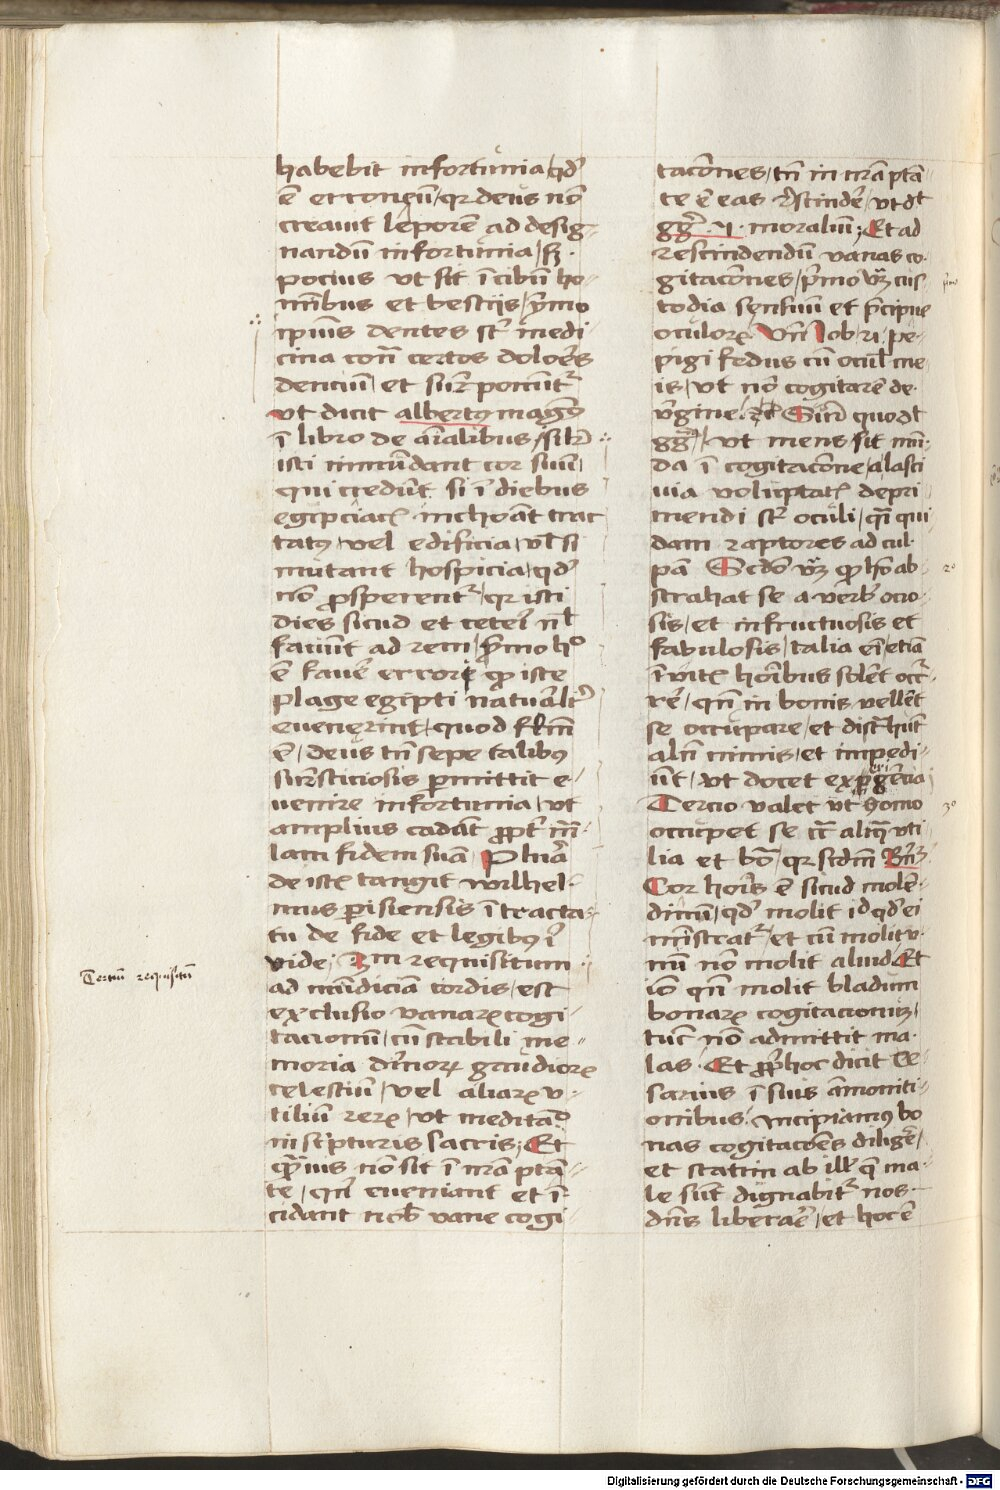 habebit infortunia / qd'
ē erroneū / qr deus nō
creauit leporem ad desig-
nandū infortunia / sȝ
pocius vt sit ī cibū ho-
minibus et bestijs / ymo
ipius dentes st' medi
cina cont' certos dolores
dencium / et sur' ponunt'
vt dicit albertꝰ magnꝰ
ī libro de aīalibus / silr
isti inmūdant cor suum /
qui credūt si ī diebus
egipciacꝭ inchoāt trac
tatꝰ / vel edificia / vl' si
mutant hospicia / qd'
nō prosperent' / qr isti
dies sicud et ceteri nl'
faciūt ad rem / ymo hº
ē fauere errori qꝫ iste
plage egipti naturalit'
euenerint / quod flm̄
ē / deus tn̄ sepe talibꝰ
sur'sticiosis permittit e-
uenire infortunia / vt
amplius cadāt propt' ma-
lam fidem suā Plura
de istꝭ tangit wilhel-
mus parisiensis ī tracta-
tu de fide et legibꝰ ī
vide / 3m requisitum
ad mūdiciam cordis / est
exclusio vanarꝫ cogi-
tacionū / cū stabili me-
moria diuinorꝫ gaudiorꝫ
celestiū / vel aliarꝫ v-
tiliū rerꝫ / vt meditacº
in scripturis sacris / Et
quāuis nō sit ī nrā ptā-
te / qn̄ eueniant et ī-
cidant nob' vane cogi-
Tertiū requisitū
tacōnes / tn̄ in nrā ptā-
te ē eas rescinde' / vt d't
gg' . 21 . moraliū / Et ad
rescindendū vanas co-
gitacōnes / p'mo vȝ cus-
todia sensuū et p'cipue
oculorꝫ Vn̄ Iob 31 pe-
pigi fedus cū oculis me-
is / vt nō cogitarē de
v'gine / Sin' quod d't
gg' / vt mens sit mū-
da ī cogitacōne / a lasci
uia voluptatꝭ depri
mendi st' oculi / qn̄ qui
dam raptores ad cul-
pā Scd'o vȝ qꝫ ho ab-
strahat se a verb' ocio-
sis / et infructuosis et
fabulosis / talia ei / etiā
īuitꝭ hoībus solēt occ'r
re' / qn̄ in bonis vellēt
se occupare / et dist'hūt
alm̄ nimis / et impedi-
ūt / vt docet expergencia
Tercio valet vt homo
occupet se cc' aliqā vti-
lia et bō / qr scdm̄ Bn̄
Cor hoīs ē sicud molē-
dinū / qd' molit id qd' ei
mīstrat' / et cū molit v-
nū nō molit aliud Et
iō qn̄ molit bladum
bonarꝫ cogitacionū /
tūc nō admittit ma-
las / Et propt' hoc dicit Ce-
sarius ī suis āmoniti-
onibus / Incipiamꝰ bo
nas cogitacōes diligē' /
et statim ab ill' q̄ ma-
le sūt dignabit' nos
dn̄s liberare / et hoc ē
2º
3º
Digitalisierung gefördert durch die Deutsche Forschungsgemeinschaft - DFG